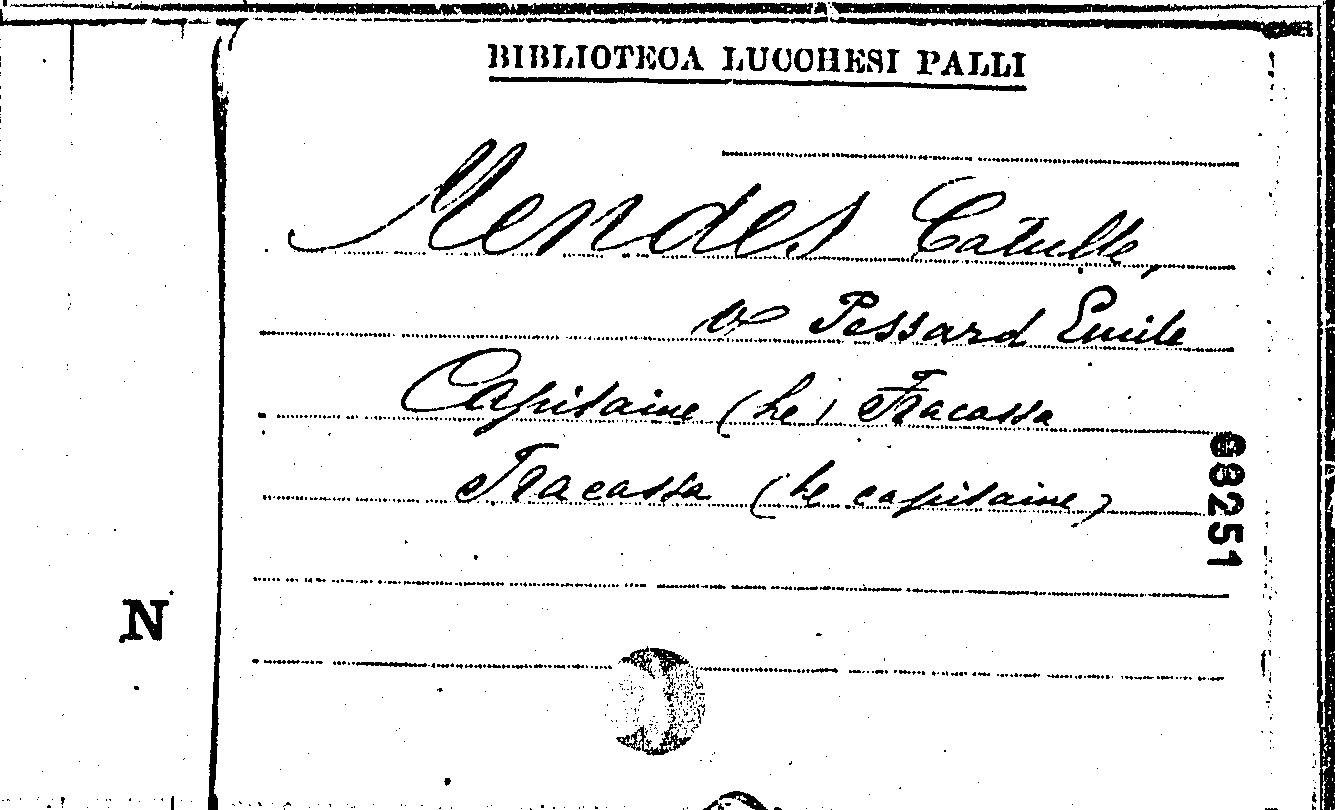 BIBLIOTECA LUCCHESI PALLI
Mendes Catulle,
v Pessard Emile
Capitaine (Le) Fracassa
Fracassa (Le capitaine)
68251
N